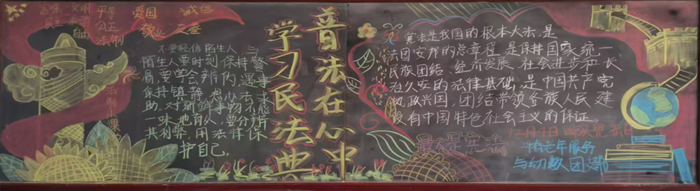 民主
文明
平等
公正
法制
爱国
敬业
诚信
友善
不要轻信陌生人,与
陌生人要时刻保持警
惕,要学会辨别,遇事
保持镇静,想办法求
助,对新鲜事物不要
一味地有,要分清
其利弊,用法律保
护自己。
普法在心中
学习民法典
宪法是我国的根本大法,是
治国安邦的总章程,是保持国家统一、
民族团结、经济发展、社会进步和长
治久安的法律基础,是中国共产党
执政兴国、团结带领各族人民建
设有中国特色社会主义的保证。
12月4日国家宪法日